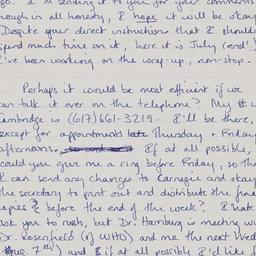 so. I'm sending it to you for your comments
rough in all honesty, I hope it will be okay
Despite your direct instruction that I should
spend much time on it, here it is July (end!)
I've been working on the wrap-up, non-stop.
Perhaps it would be most efficient if we
can talk it over on the telephone? My # in
Cambridge is (617) 661-3219. I'll be there,
except for appointments Thursday + Friday
afternoons. If at all possible,
could you give me a ring before Friday, so tha
I can send any changes to Carnegie and okay
the secretary to print out and distribute the fina
copies before the end of the week? I hate
ask you to rush, but Dr. Hamburg is meeting wi
Dr. Rosenfield (of WHO) and me the next Wed
Aug. 7th) and if at all possible I'd like